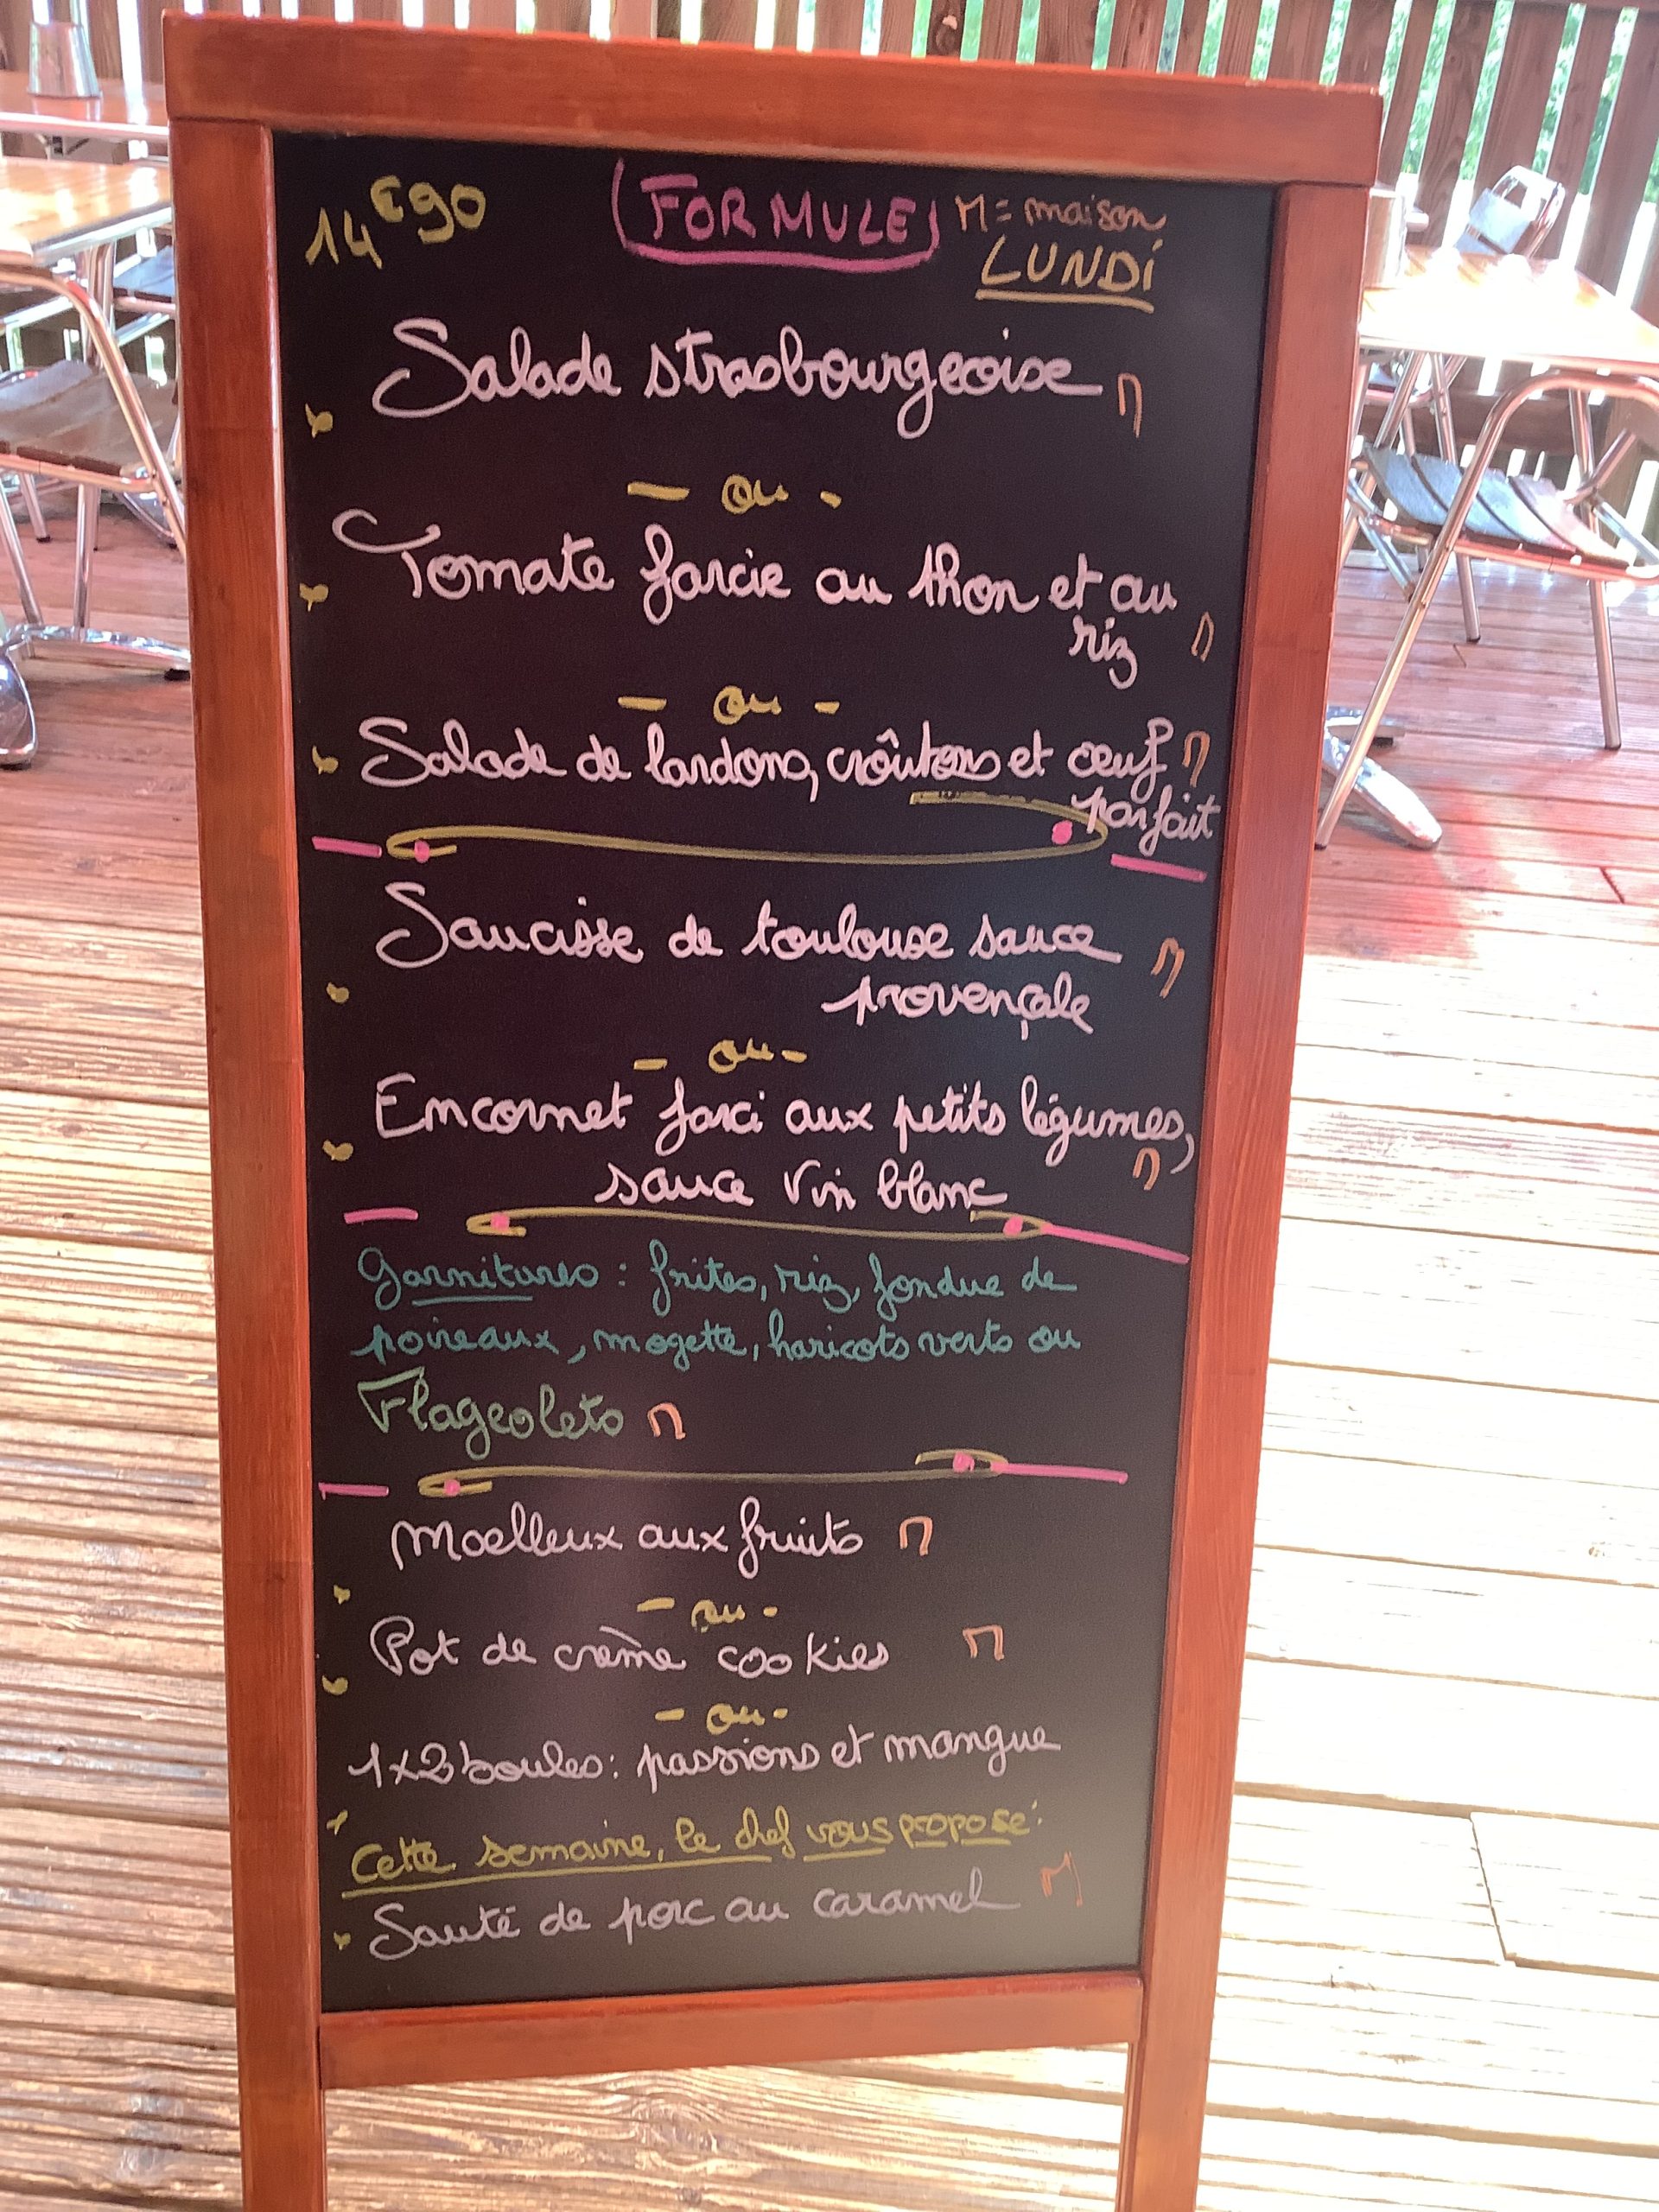 14€90 FORMULE M = maison
LUNDi
Salade strasbourgeoise M
- ou -
Tomate farcie au thon et au
riz M
- ou -
Salade de lardons, croûtons et œuf M
parfait
Saucisse de toulouse sauce M
provençale
- ou -
Encornet farci aux petits légumes,
sauce vin blanc M
Garnitures : frites, riz, fondue de
poireaux, mogette, haricots verts ou
Flageolets M
Moelleux aux fruits M
- ou -
Pot de crème cookies M
- ou -
1x2 boules : passions et mangue
Cette semaine, le chef vous propose :
Sauté de porc au caramel M